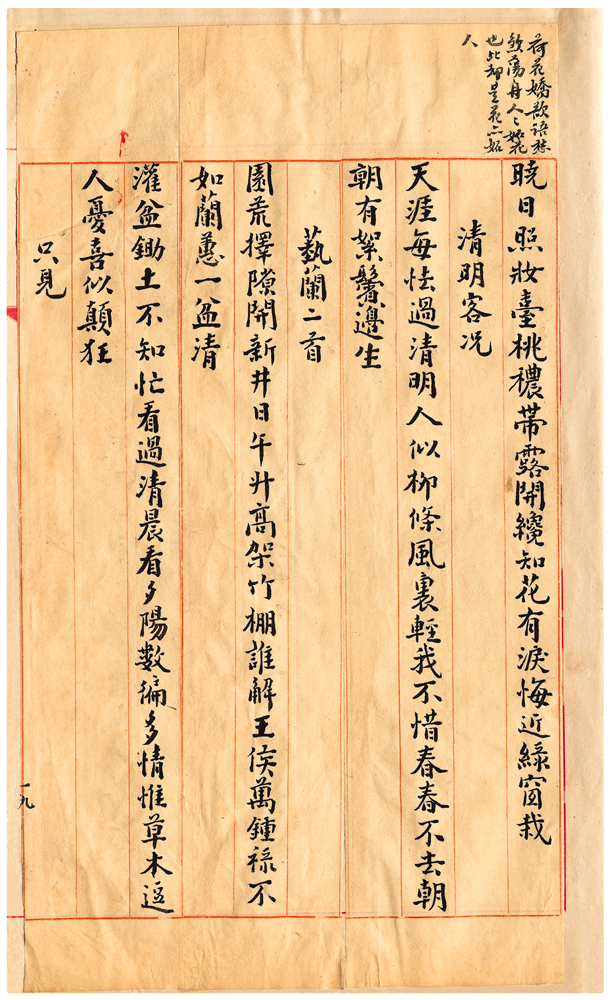 荷花嬌欲語愁
煞蕩舟人人如花
也此却是花亦如
人
曉日照妝臺桃穠帶露開纔知花有淚悔近綠窗栽
清明客况
天涯每怯過清明人似柳條風裏輕我不惜春春不去朝
朝有絮鬢邊生
藝蘭二首
園荒擇隙開新井日午廾高架竹棚誰解王侯萬鍾祿不
如蘭蕙一盆清
灌盆鋤土不知忙看過清晨看夕陽數徧多情惟草木逗
人憂喜似顛狂
只見
一九